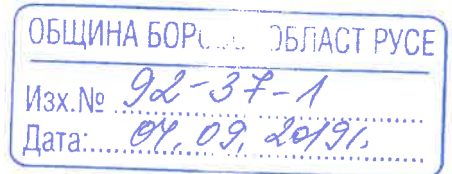 ОБЩИНА ОБЛАСТ РУСЕ
Изх.№ 92-37-1
Дата: 09, 2019г.